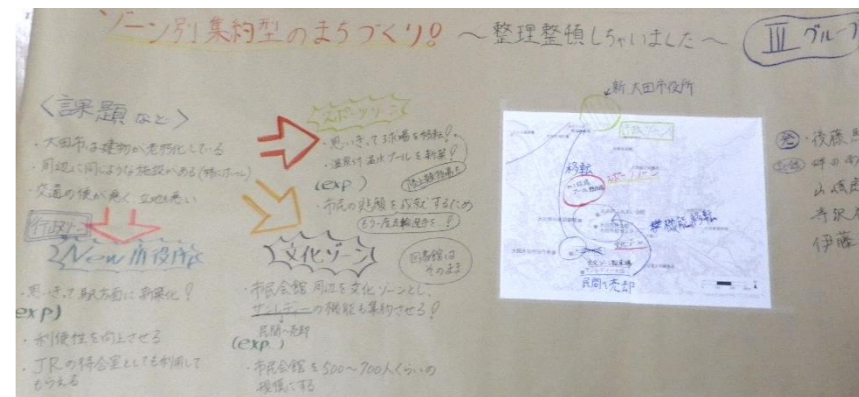 ゾーン別集約型のまちづくり! ～整理整頓しちゃいました～ Ⅲグループ
<課題など>
・大田市は建物が老朽化している
・周辺に同じような施設がある(特にホール)
・交通の便が悪く、立地も悪い
行政ゾーン
New市役所
・思いきって駅方面に新築化!
exp)
・利便性を向上させる
・JRの待合室としても利用して
もらえる
スポーツゾーン
・思いきって球場を移転!
・温泉付温水プールを新築!
(exp.)
・市民の悲願を成就するため
文化ゾーン
図書館は
そのまま
・市民会館周辺を文化ゾーンとし、
サンレディーの機能も集約させる!
民間へ売却
(exp.)
・市民会館を500～700人くらいの
規模にする
新大田市役所
行政ゾーン
移転
スポーツゾーン
民間へ売却
発・後藤
伊藤